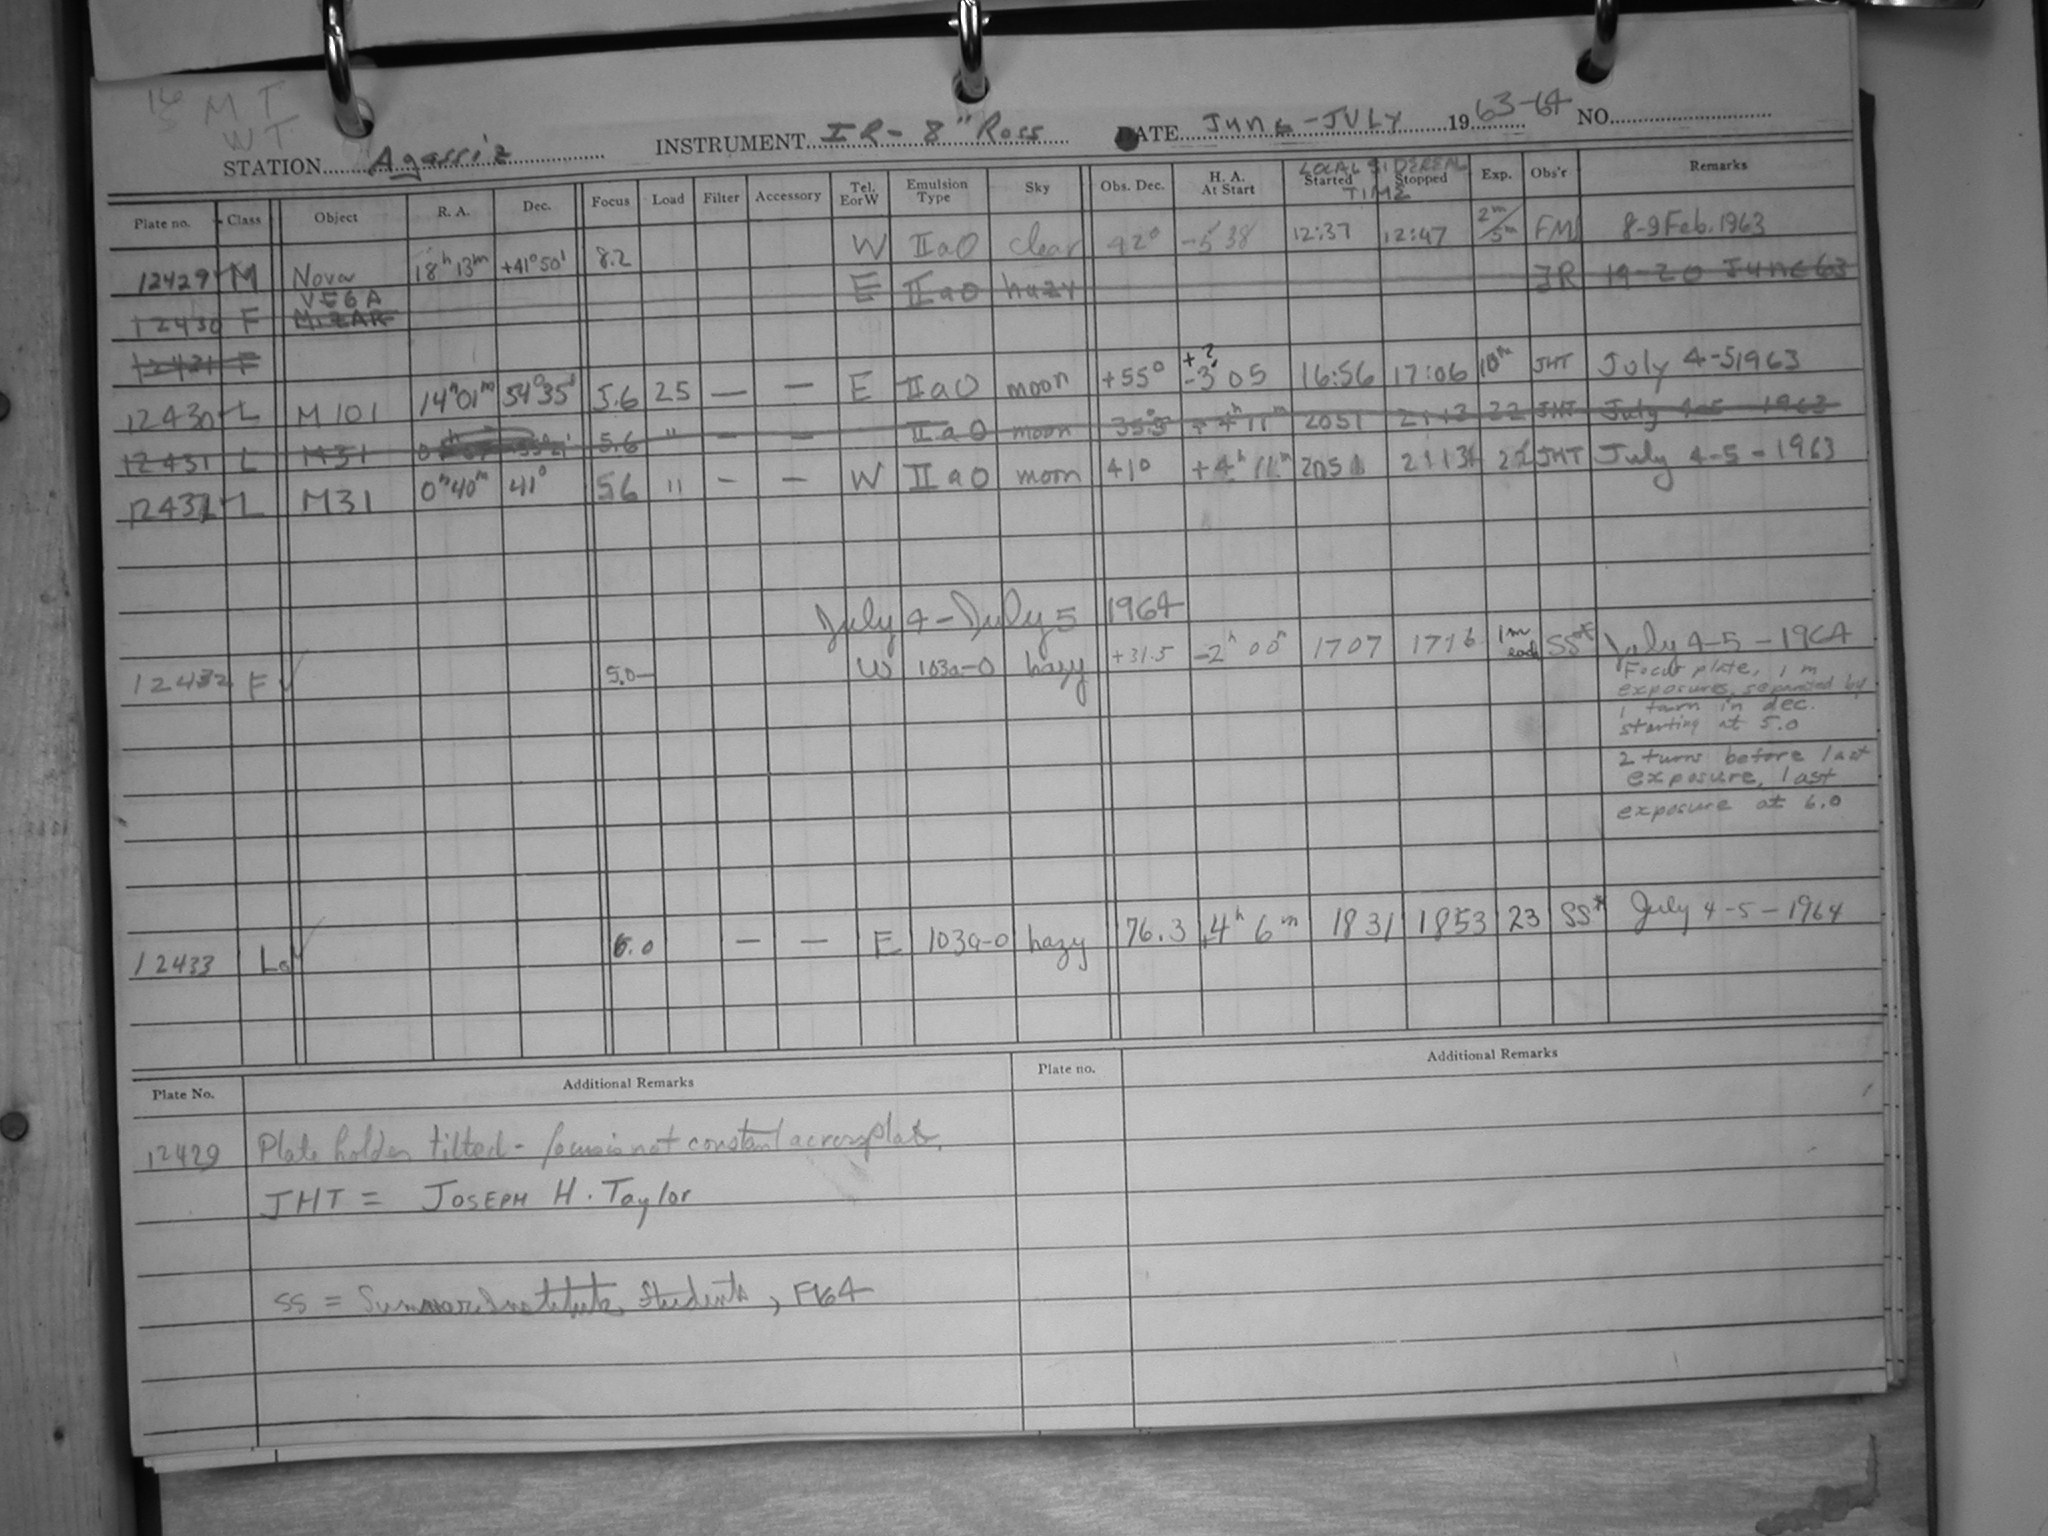 16 M T
5 WT
STATION Agassiz INSTRUMENT IR- 8" Ross DATE June-JULY 1963-64 NO.
Plate no. Class Object R. A. Dec. Focus Load Filter Accessory Tel. E or W Emulsion Type Sky Obs. Dec. H. A. At Start LOCAL SIDEREAL TIME Started Stopped Exp. Obs'r Remarks
12429 M Nova 18h 13m +41° 50' 8.2 W IIaO clear 42° -5 38 12:37 12:47 2m/5m FM 8-9 Feb. 1963
12430 F VEGA MIZAR E IIaO hazy JR 19-20 June 63
12431 F
12430 L M 101 14h01m 54°35' 5.6 25 — — E IIaO moon +55° +? -3 05 16:56 17:06 10m JHT July 4-5 1963
12431 L M31 5.6 " — — IIaO moon 35.5 +4h 11m 2051 2113 22 JHT July 4-5-1963
12431 L M31 0h40m 41° 5.6 " — — W IIaO moon 41° +4h 11m 2051 2113 22 JHT July 4-5-1963
July 4 - July 5 1964
12432 F 5.0— W 103a-O hazy +31.5 -2h 00m 1707 1716 1m each SS* July 4-5-1964
Focus plate, 1 m
exposures, separated by
1 turn in dec.
starting at 5.0
2 turns before last
exposure, last
exposure at 6.0
12433 L 6.0 — — E 103a-O hazy 76.3 +4h 6m 1831 1853 23 SS* July 4-5-1964
Plate No. Additional Remarks Plate no. Additional Remarks
12429 Plate holder tilted - focus is not constant across plate.
JHT = JOSEPH H. Taylor
SS = Summer Institute Students, 1964